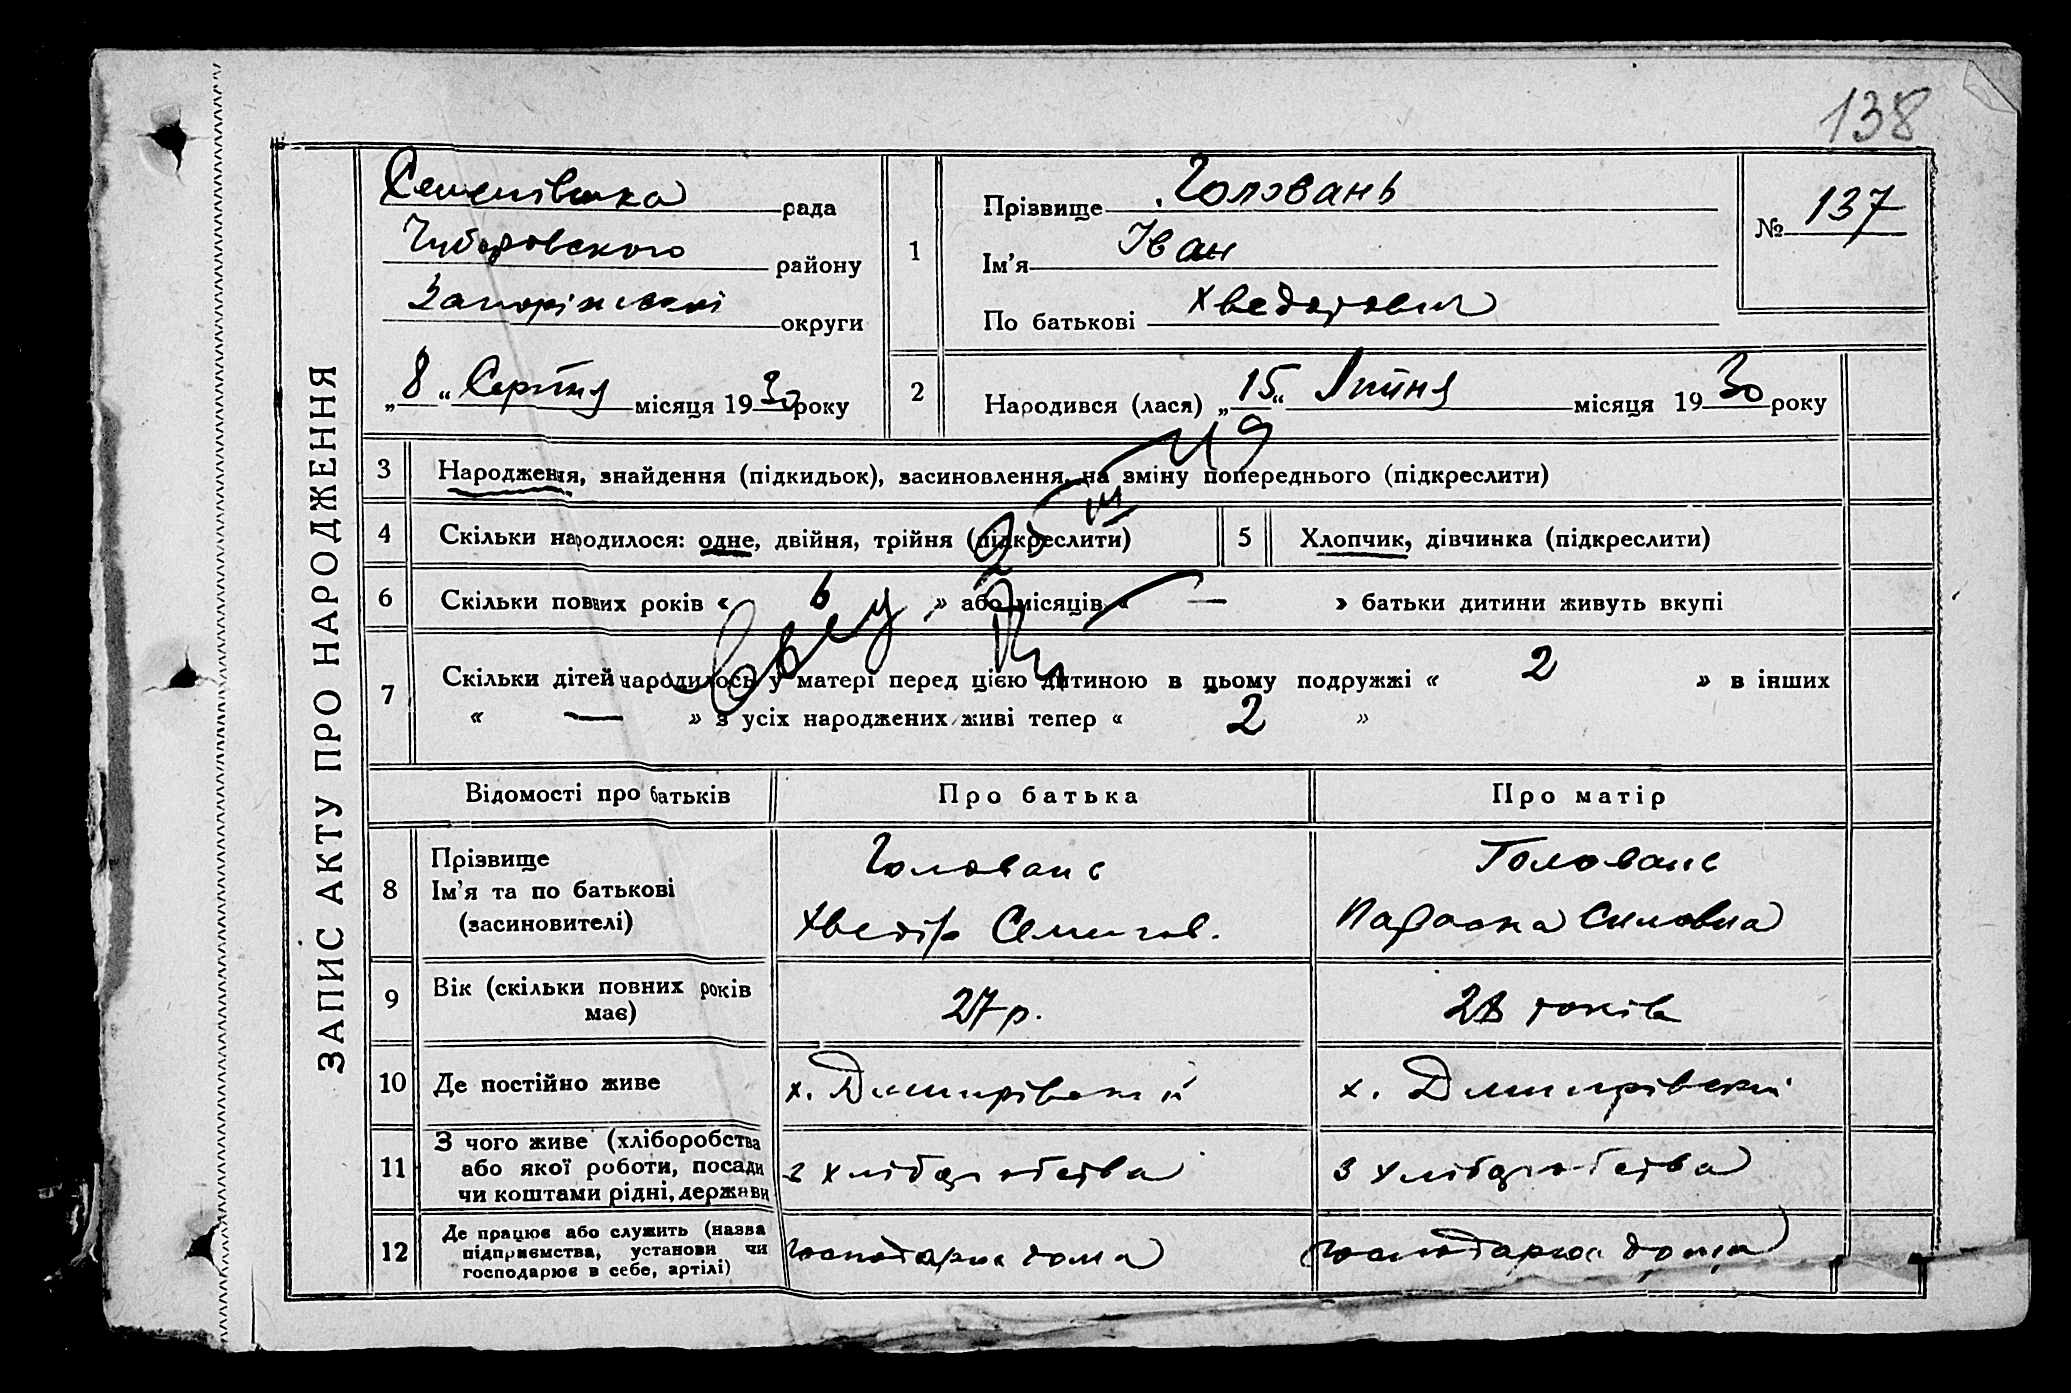 138
ЗАПИС АКТУ ПРО НАРОДЖЕННЯ
Семенівська рада
Чубаровского району
Запоріжської округи
„8“ Серпня місяця 1930 року
1
Прізвище Головань
Ім'я Іван
По батькові Хведорович
№ 137
2
Народився (лася) „15“ Липня місяця 1930 року
3 Народження, знайдення (підкидьок), засиновлення, на зміну попереднього (підкреслити)
4 Скільки народилося: одне, двійня, трійня (підкреслити)
5 Хлопчик, дівчинка (підкреслити)
6 Скільки повних років « 6 » або місяців « — » батьки дитини живуть вкупі
7 Скільки дітей народилось у матері перед цією дитиною в цьому подружжі « 2 » в інших
« — » з усіх народжених живі тепер « 2 »
Відомості про батьків Про батька Про матір
8 Прізвище
Ім'я та по батькові
(засиновителі)
Головань
Хведір Семенов.
Головань
Параска Силовна
9 Вік (скільки повних років
має)
27 р.
28 років
10 Де постійно живе
х. Дмитрівский
х. Дмитрівский
11 З чого живе (хліборобства
або якої роботи, посади
чи коштами рідні, держави
з хліборобства
З хліборобства
12 Де працює або служить (назва
підприємства, установи чи
господарює в себе, артілі)
господарює дома
господарює дома